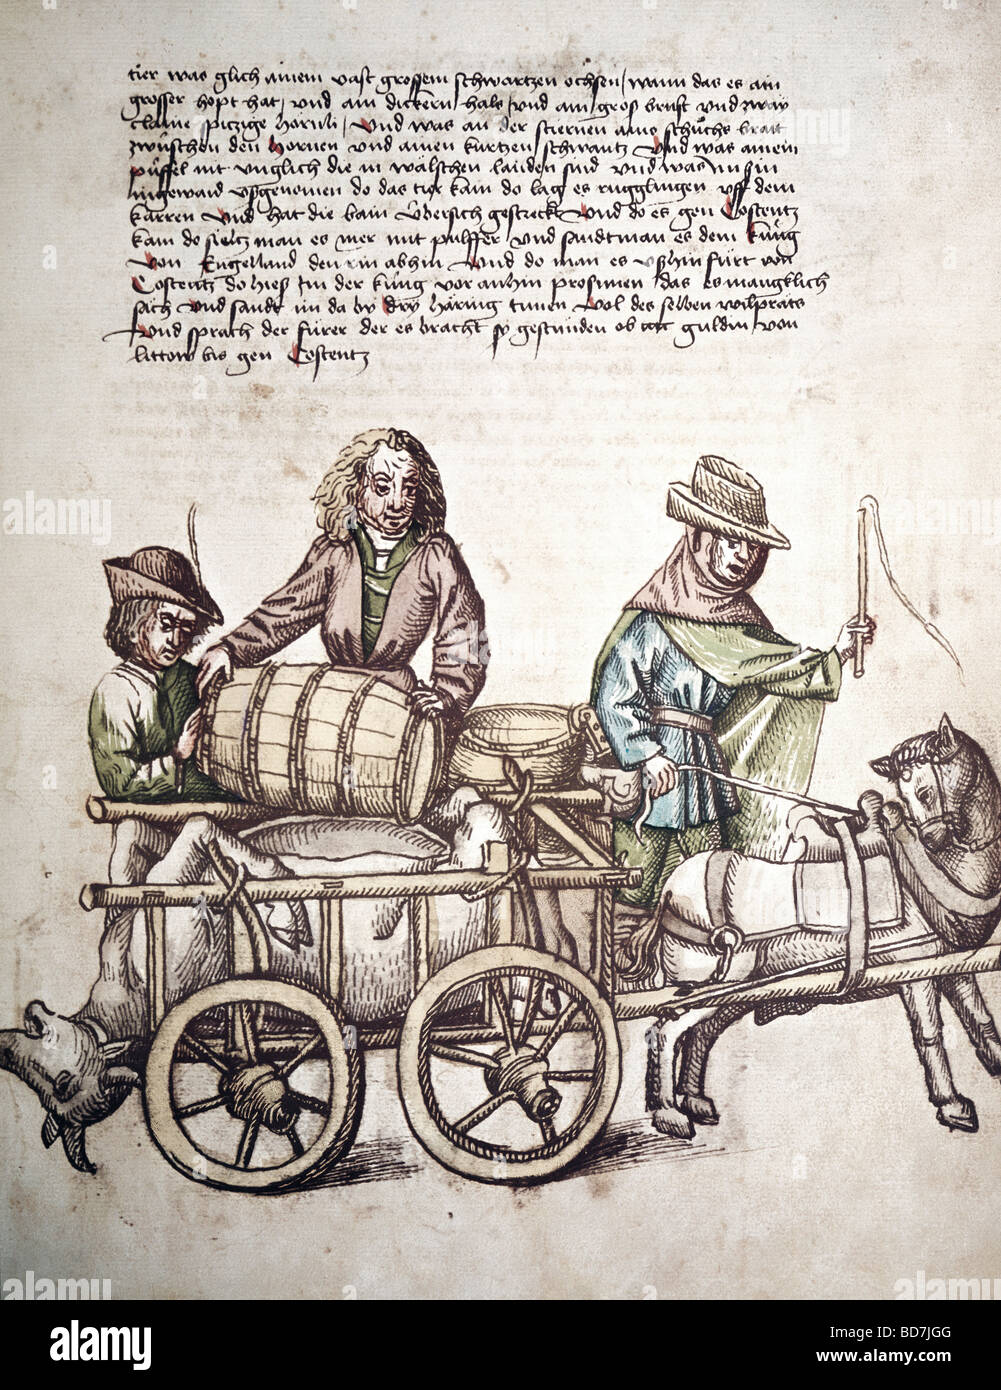 tier was glich ainem vast grossem schwartzen ochsen / wann das es ain
grosser hopt hat / und ain dickern hals / und ain gros brust und zway
claine spitzige hörnli / Und was an der stiernen ains schůchs brait
zwüschen den Hornen und ainen kurtzen schwantz Und was ainem
püffel nit unglich die in wälschen landen sind und was im sin
ingewaid usgenomen do das tier kam do lag es rugglingen uff dem
karren Und hat die bain übersich gestreckt Und do es gen Costentz
kam do sieltz man es mer mit pulffer und sandt man es dem küng
von Engelland den rin abhin Und do man es usshin fürt von
Costentz do hies Im der küng vor anhin prosunen das es mangklich
sach Und sandt im da by dry häring tunen vol des selben wilpräts
Und sprach der fürer der es bracht sy gestünden ob guldin von
littow bis gen Costentz
alamy
alamy
alamy
alamy
alamy
BD7JGG
www.alamy.com